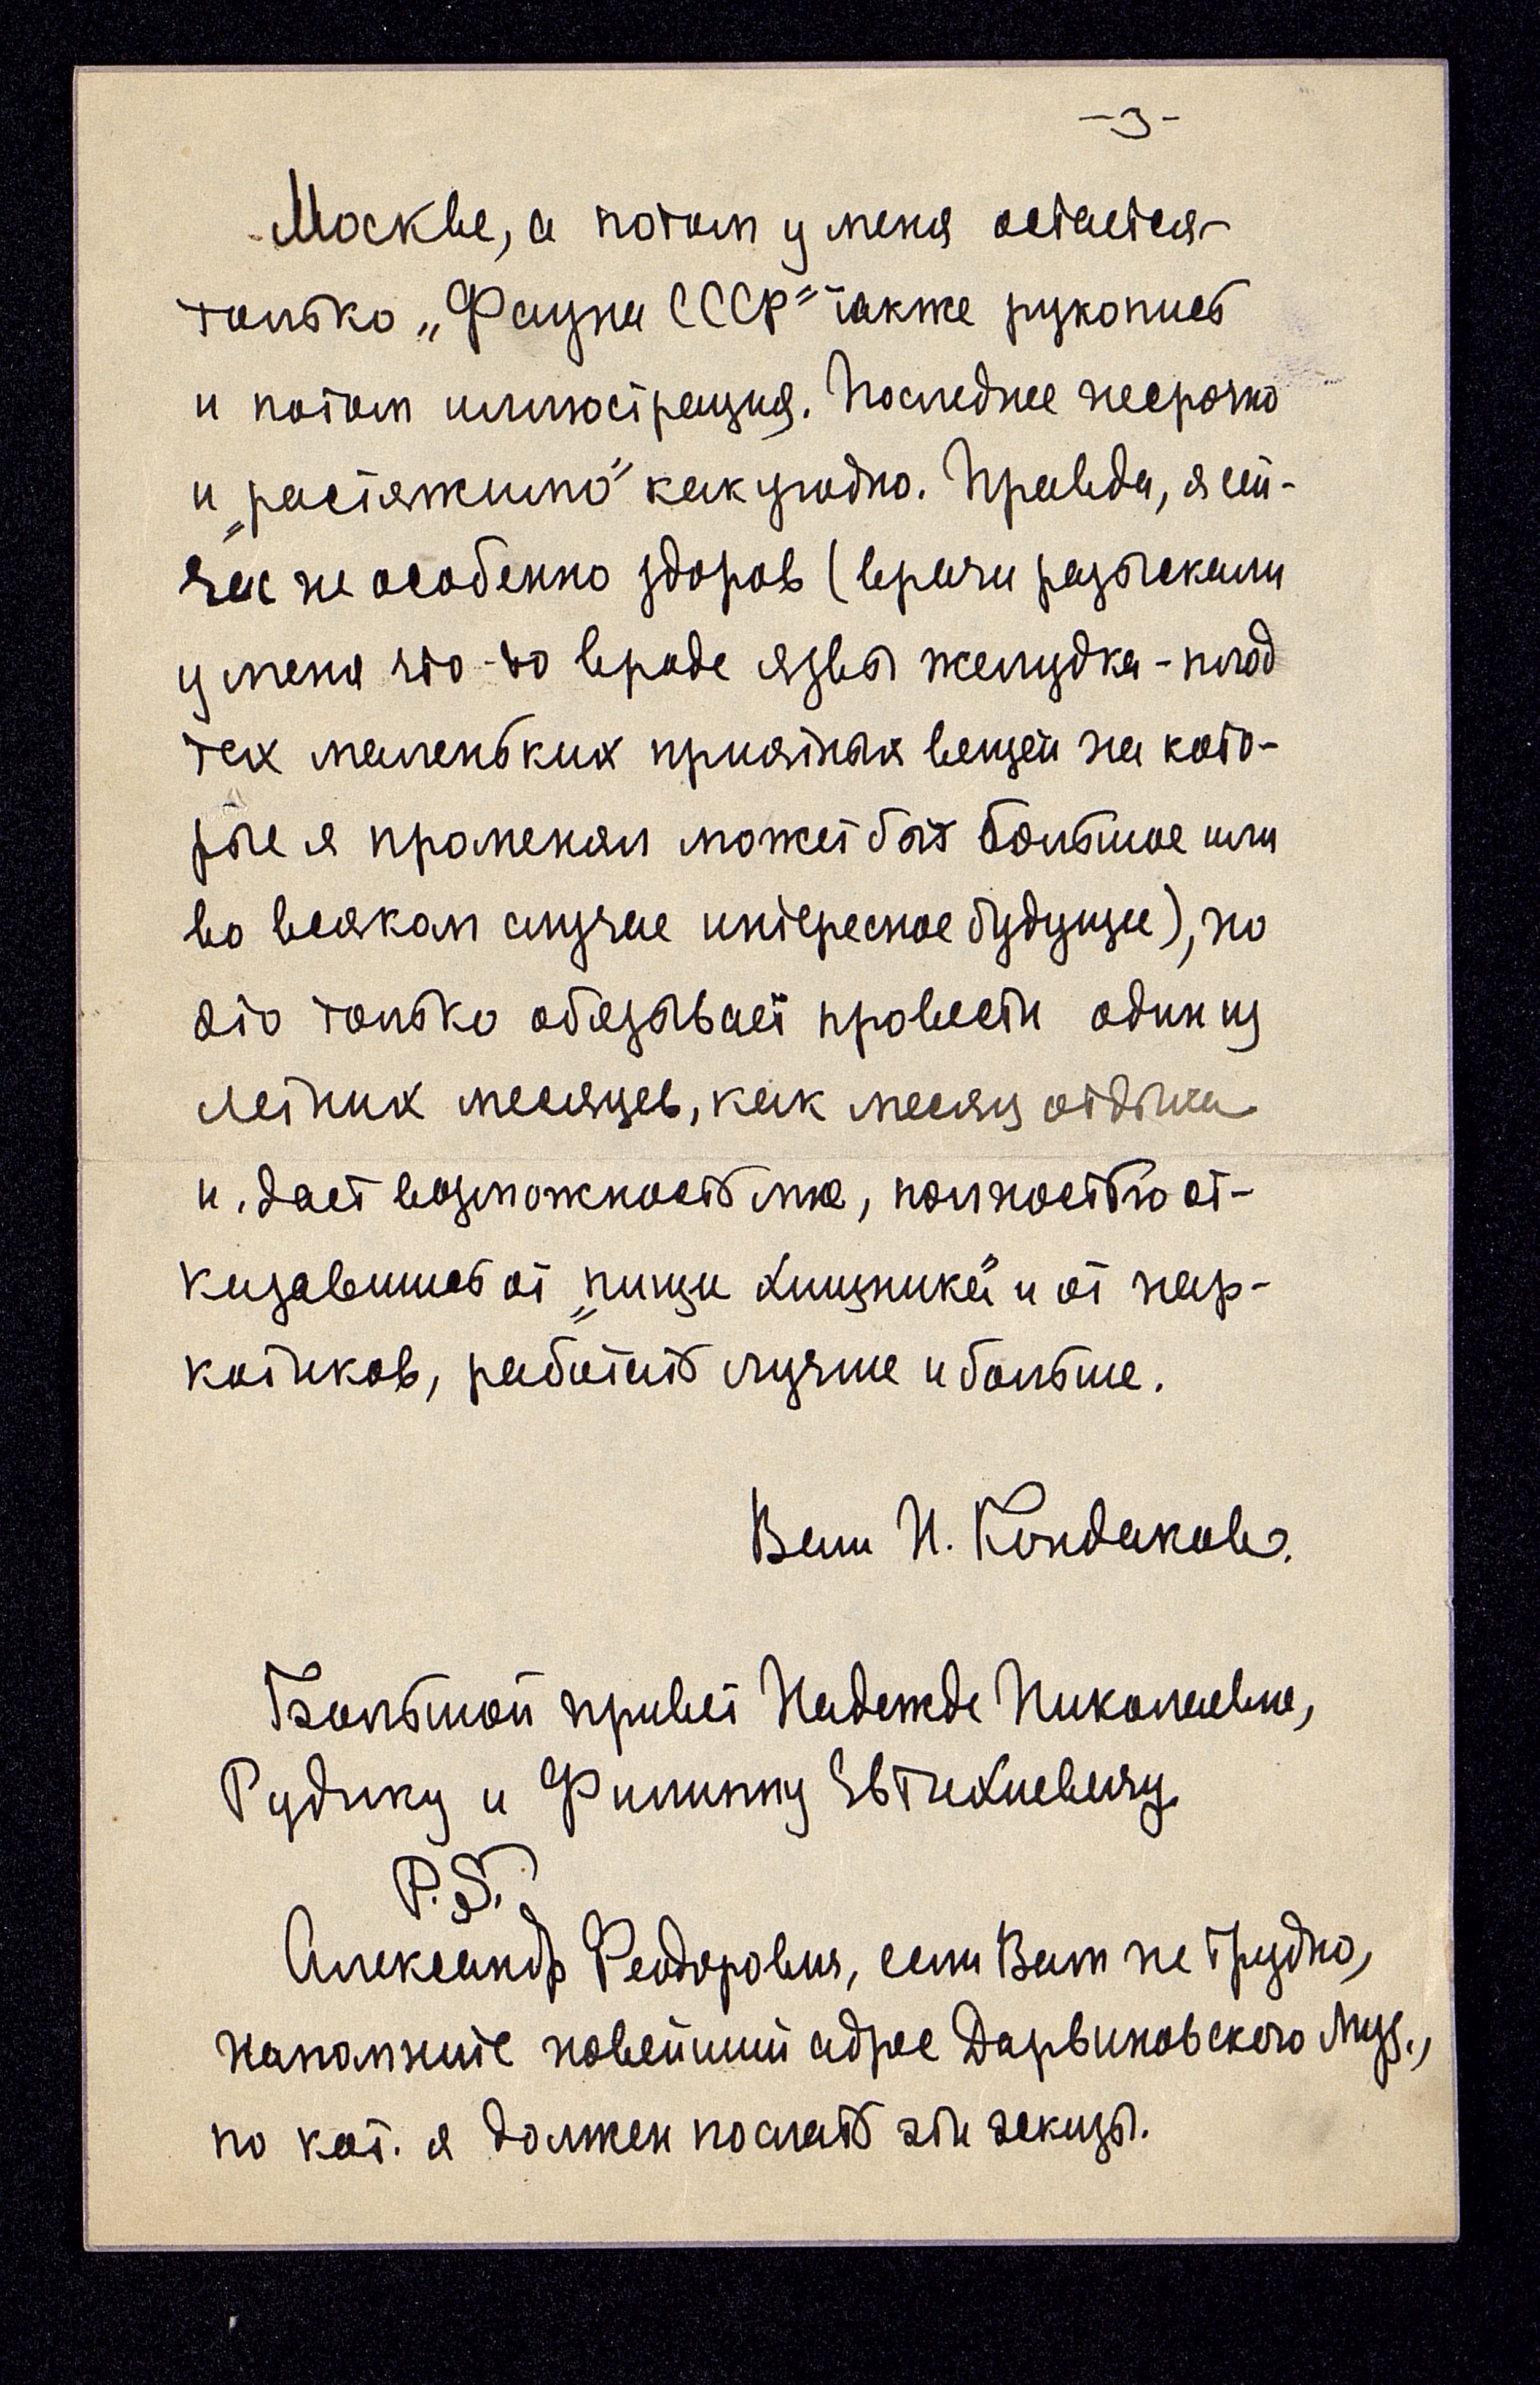 -3-
Москве, а потом у меня остается
только „Фауна СССР" также рукопись
и потом иллюстрация. Последнее несрочно
и „растяжимо" как угодно. Правда, я сей-
час не особенно здоров (врачи разыскали
у меня что-то вроде язвы желудка - плод
тех маленьких приятных вещей на кото-
рые я променял может быт большое или
во всяком случае интересное будущее), но
это только обязывает провести один из
летних месяцев, как месяц отдыха
и дает возможность мне, полностью от-
казавшись от „пищи хищника" и от нар-
котиков, работать лучше и больше.
Ваш Н. Кондаков.
Большой привет Надежде Николаевне,
Рудику и Филиппу Евтихиевичу.
P.S.
Александр Феодорович, если Вам не трудно,
напомните новейший адрес Дарвиновского Муз.,
по кот. я должен послать эти эскизы.